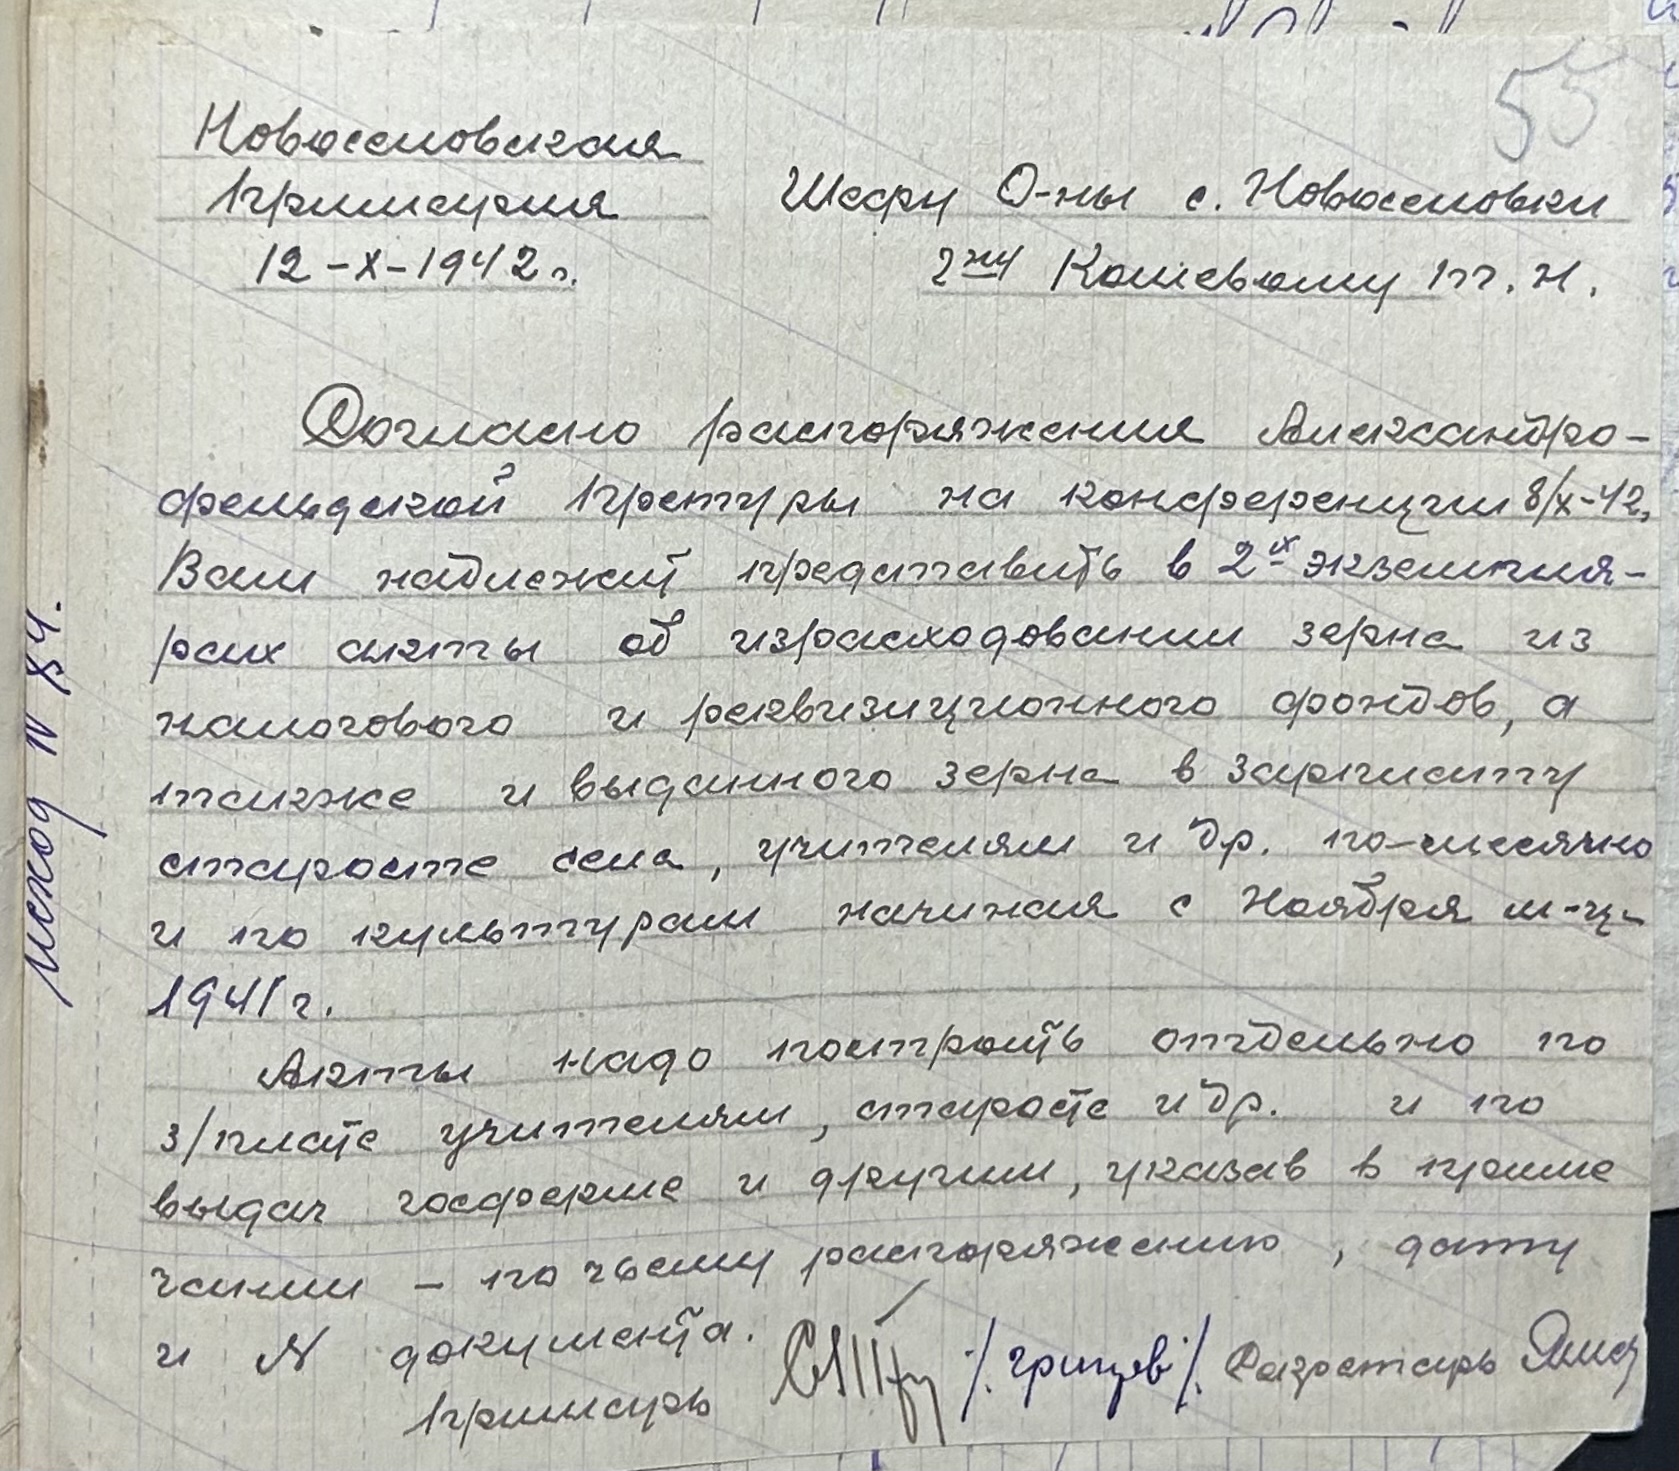 55
Новоселовская
Примерия
12-X-1942 г.
Шефу О-ны с. Новоселовки
г-ну Кошевому Т. Н.
Согласно распоряжения Александро-
фельдской Претуры на конференции 8/X-42,
Вам надлежит представить в 2-х экземпля-
рах акты об израсходовании зерна из
налогового и реквизиционного фондов, а
также и выданного зерна в зарплату
старосте села, учителям и др. по-месячно
и по культурам начиная с Ноября м-ц
1941 г.
Акты надо построить отдельно по
з/плате учителям, старосте и др. и по
выдач госферме и другим, указав в приме
чании - по чьему распоряжению, дату
и N документа.
Примарь /. Грицев /. Секретарь
Исход N 84.